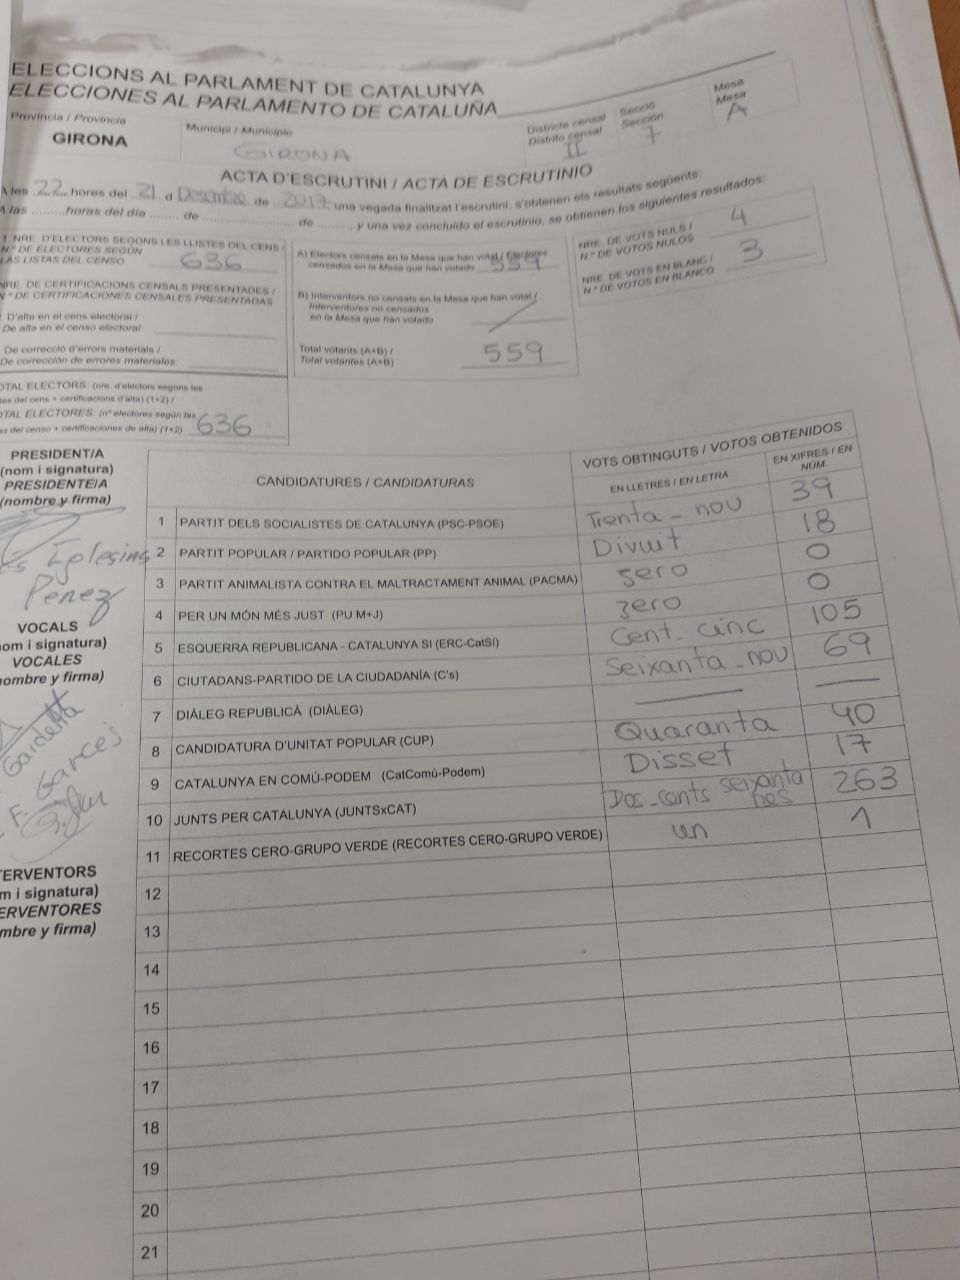 ELECCIONS AL PARLAMENT DE CATALUNYA
ELECCIONES AL PARLAMENTO DE CATALUÑA
Província / Provincia
GIRONA
Municipi / Municipio
GIRONA
Districte censal
Distrito censal
II
Secció
Sección
7
Mesa
Mesa
A
ACTA D'ESCRUTINI / ACTA DE ESCRUTINIO
A les 22 hores del 21 d Desembre de 2017, una vegada finalitzat l'escrutini, s'obtenen els resultats següents:
A las ......... horas del día ........ de .............................. de .......... y una vez concluido el escrutinio, se obtienen los siguientes resultados:
1. NRE. D'ELECTORS SEGONS LES LLISTES DEL CENS /
N.º DE ELECTORES SEGÚN
LAS LISTAS DEL CENSO 636
NRE. DE CERTIFICACIONS CENSALS PRESENTADES /
N.º DE CERTIFICACIONES CENSALES PRESENTADAS
D'alta en el cens electoral /
De alta en el censo electoral:
De correcció d'errors materials /
De corrección de errores materiales:
TOTAL ELECTORS: (nre. d'electors segons les
del cens + certificacions d'alta) (1+2) /
TOTAL ELECTORES: (nº electores según las
del censo + certificaciones de alta) (1+2) 636
A) Electors censats en la Mesa que han votat / Electores
censados en la Mesa que han votado 559
B) Interventors no censats en la Mesa que han votat /
Interventores no censados
en la Mesa que han votado
Total votants (A+B) /
Total votantes (A+B) 559
NRE. DE VOTS NULS /
N.º DE VOTOS NULOS 4
NRE. DE VOTS EN BLANC /
N.º DE VOTOS EN BLANCO 3
PRESIDENT/A
(nom i signatura)
PRESIDENTE/A
(nombre y firma)
Iglesias
Perez
VOCALS
nom i signatura)
VOCALES
nombre y firma)
Gardella
F. Garces
INTERVENTORS
m i signatura)
ERVENTORES
mbre y firma)
CANDIDATURES / CANDIDATURAS
VOTS OBTINGUTS / VOTOS OBTENIDOS
EN LLETRES / EN LETRA
EN XIFRES / EN
NÚM.
1 PARTIT DELS SOCIALISTES DE CATALUNYA (PSC-PSOE) Trenta-nou 39
2 PARTIT POPULAR / PARTIDO POPULAR (PP) Divuit 18
3 PARTIT ANIMALISTA CONTRA EL MALTRACTAMENT ANIMAL (PACMA) zero 0
4 PER UN MÓN MÉS JUST (PU M+J) zero 0
5 ESQUERRA REPUBLICANA - CATALUNYA SI (ERC-CatSí) Cent-cinc 105
6 CIUTADANS-PARTIDO DE LA CIUDADANÍA (C's) Seixanta-nou 69
7 DIÀLEG REPUBLICÀ (DIÀLEG) — —
8 CANDIDATURA D'UNITAT POPULAR (CUP) Quaranta 40
9 CATALUNYA EN COMÚ-PODEM (CatComú-Podem) Disset 17
10 JUNTS PER CATALUNYA (JUNTSxCAT) Dos-cents seixanta tres 263
11 RECORTES CERO-GRUPO VERDE (RECORTES CERO-GRUPO VERDE) un 1
12
13
14
15
16
17
18
19
20
21